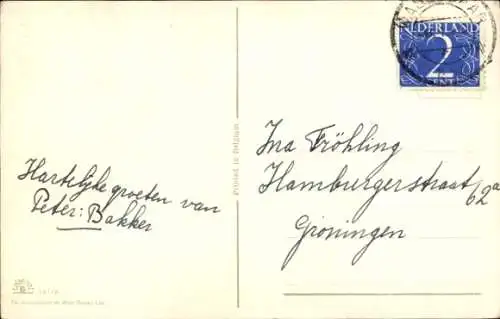 Hartelijke groeten van
Peter: Bakker
Printed in Belgium
NEDERLAND
2
CENT
Ina Fröhling
Hamburgerstraat 62a
Groningen